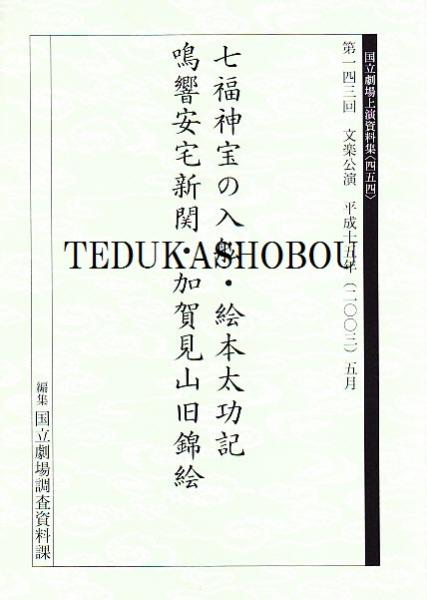 国立劇場上演資料集〈四五四〉
第一四三回 文楽公演 平成十五年(二〇〇三)五月
七福神宝の入舩・絵本太功記
鳴響安宅新関・加賀見山旧錦絵
編集 国立劇場調査資料課
TEDUKASHOBOU